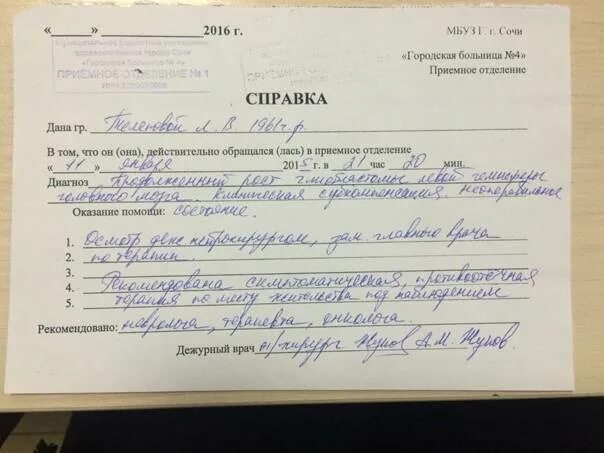 «____» ____________ 2016 г.
МБУЗ Г. г. Сочи
«Городская больница №4»
Приемное отделение
Муниципальное бюджетное учреждение
здравоохранения города Сочи
«Городская больница № 4»
ПРИЁМНОЕ ОТДЕЛЕНИЕ № 1
СПРАВКА
Дана гр. Телековой Л. В 1961 г. р.
В том, что он (она), действительно обращался (лась) в приемное отделение
« 11 » января 2015 г. в 21 час 20 мин.
Диагноз Продолженный рост глиобластомы левой гемисферы
головного мозга. Клиническая субкомпенсация. Неоперабильное
Оказание помощи: состояние.
1. Осмотр деж нейрохирургом, зам. главного врача
2. по терапии.
3.
4. Рекомендована симптоматическая, противоотечная
5. терапия по месту жительства под наблюдением
Рекомендовано: невролога, терапевта, онколога.
Дежурный врач н/хирург Жупов А.М. Жупов.